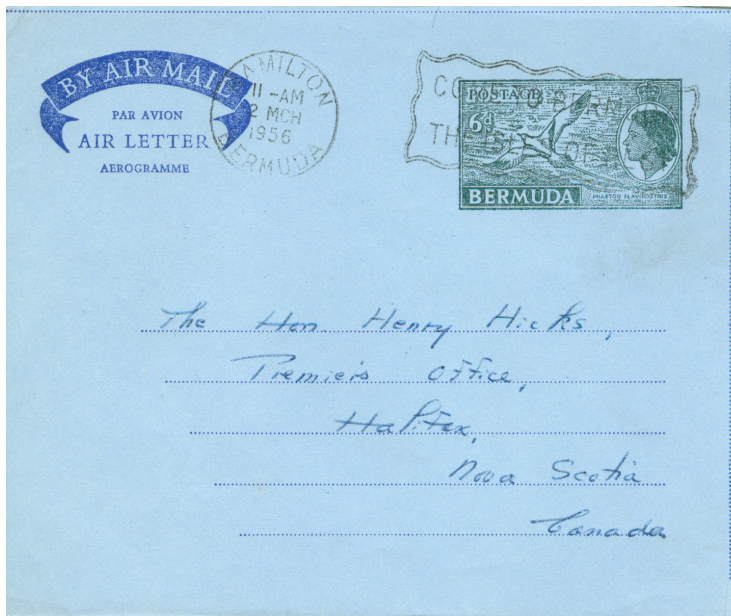 BY AIR MAIL
PAR AVION
AIR LETTER
AEROGRAMME
HAMILTON
11-AM
2 MCH
1956
BERMUDA
POSTAGE
6d
BERMUDA
The Hon. Henry Hicks,
Premier's Office,
Halifax,
Nova Scotia
Canada